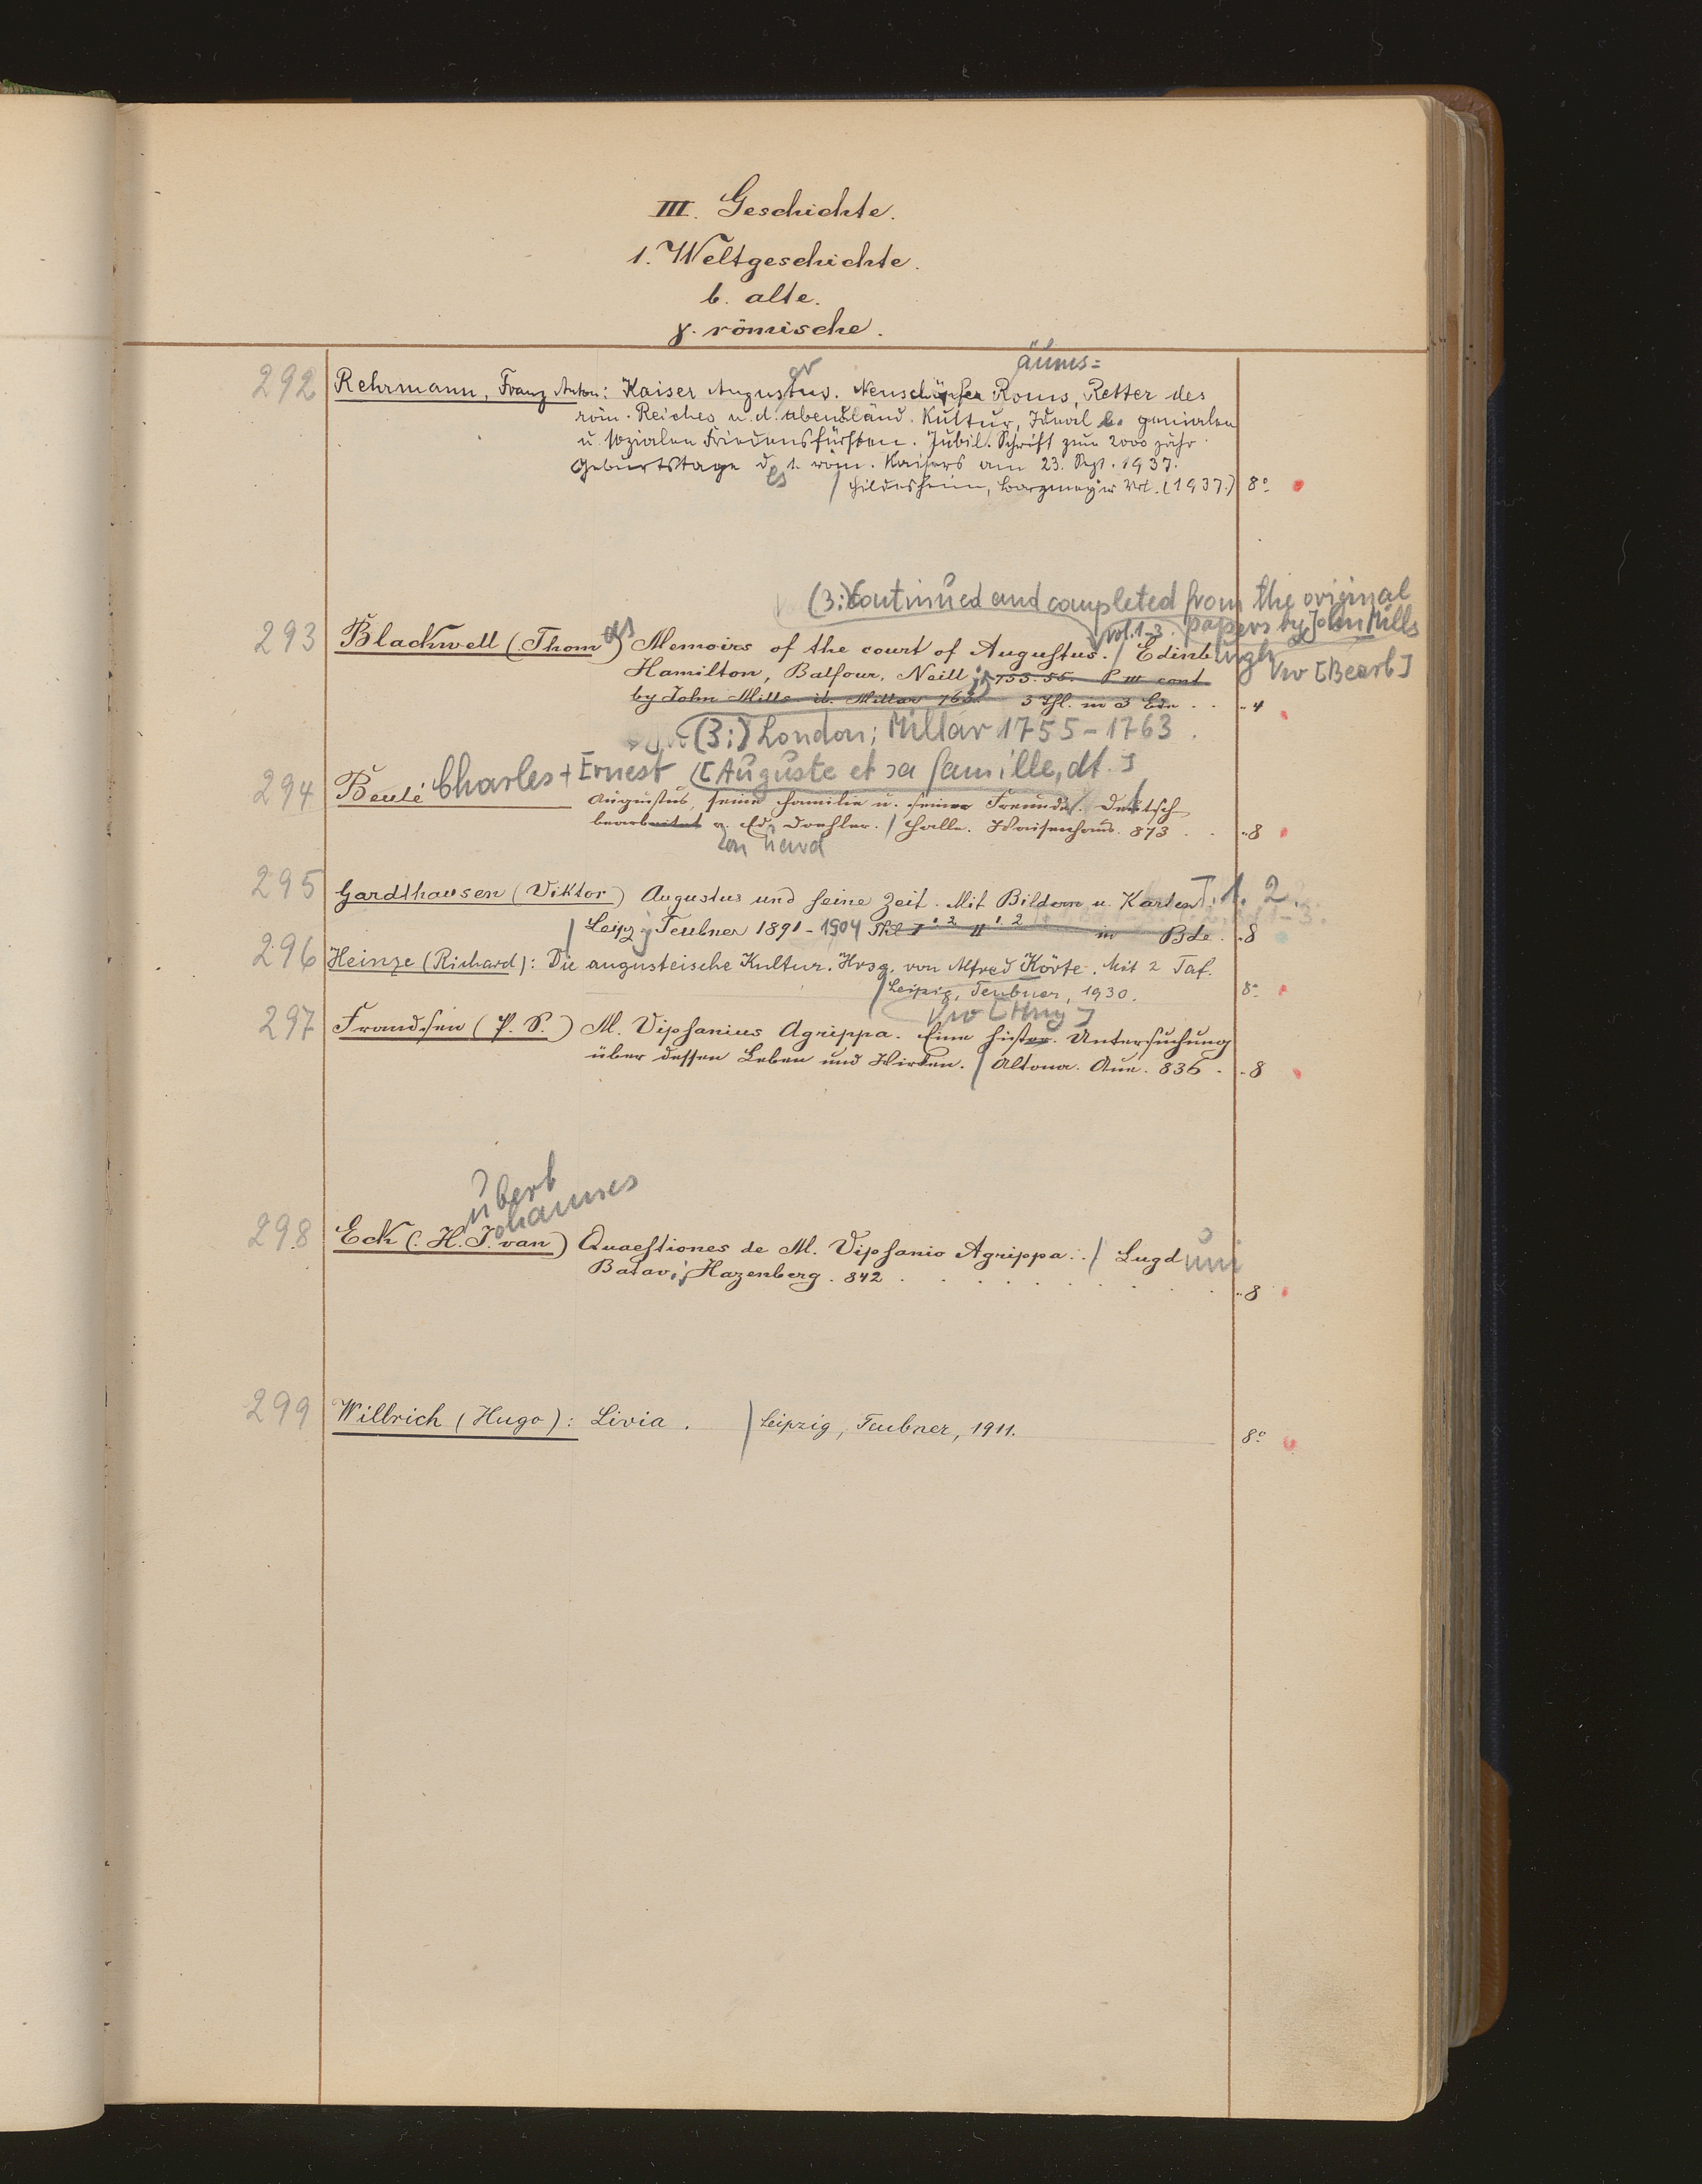 III. Geschichte.
1. Weltgeschichte.
b. alte.
γ. römische.
äums=
292 Rehrmann, Franz Anton: Kaiser Augustus. Neuschöpfer Roms, Retter des
röm. Reiches u. d. abendländ. Kultur, Ideal d. genialen
u. sozialen Friedensfürsten. Jubil. Schrift zum 2000 jähr.
Geburtstage des 1. röm. Kaisers am 23. Sept. 1937.
/ Hildesheim, Borgmeyer Verl. (1937.) 8°
(3:) Continued and completed from the original
vol. 1-3. papers by John Mills
293 Blackwell (Thomas) Memoirs of the court of Augustus. / Edinburgh
Vw [Bearb]
Hamilton, Balfour, Neill; 755. 55. P III cont
by John Mills ib. Millar 763. 3 Thl. in 3 Bde . . „ 4
(3:) London; Millar 1755-1763.
294 Beulé Charles + Ernest [Auguste et sa famille, dt.]
Augustus, seine Familie u. seine Freunde. Deutsch
bearbeitet v. Ed. Doehler. / Halle. Waisenhaus. 873 . . „ 8
von hard
295 Gardthausen (Viktor) Augustus und seine Zeit. Mit Bildern u. Karten T. 1. 2.
/ Leipz; Teubner 1891-1904 Thl I 1. 2 II 1. 2 in Bde. „ 8
296 Heinze (Richard): Die augusteische Kultur. Hrsg. von Alfred Körte. Mit 2 Taf.
/ Leipzig, Teubner, 1930. 8°
Vw [Hrsg]
297 Frandsen (P. S.) M. Vipsanius Agrippa. Eine histor. Untersuchung
über dessen Leben und Wirken. / Altona. Aue. 836 . „ 8
übert
ohannes
298 Eck (H. J. van) Quaestiones de M. Vipsanio Agrippa. / Lugduni
Batavi; Hazenberg. 842 . . . . . . . . „ 8
299 Willrich (Hugo): Livia. / Leipzig, Teubner, 1911. 8°